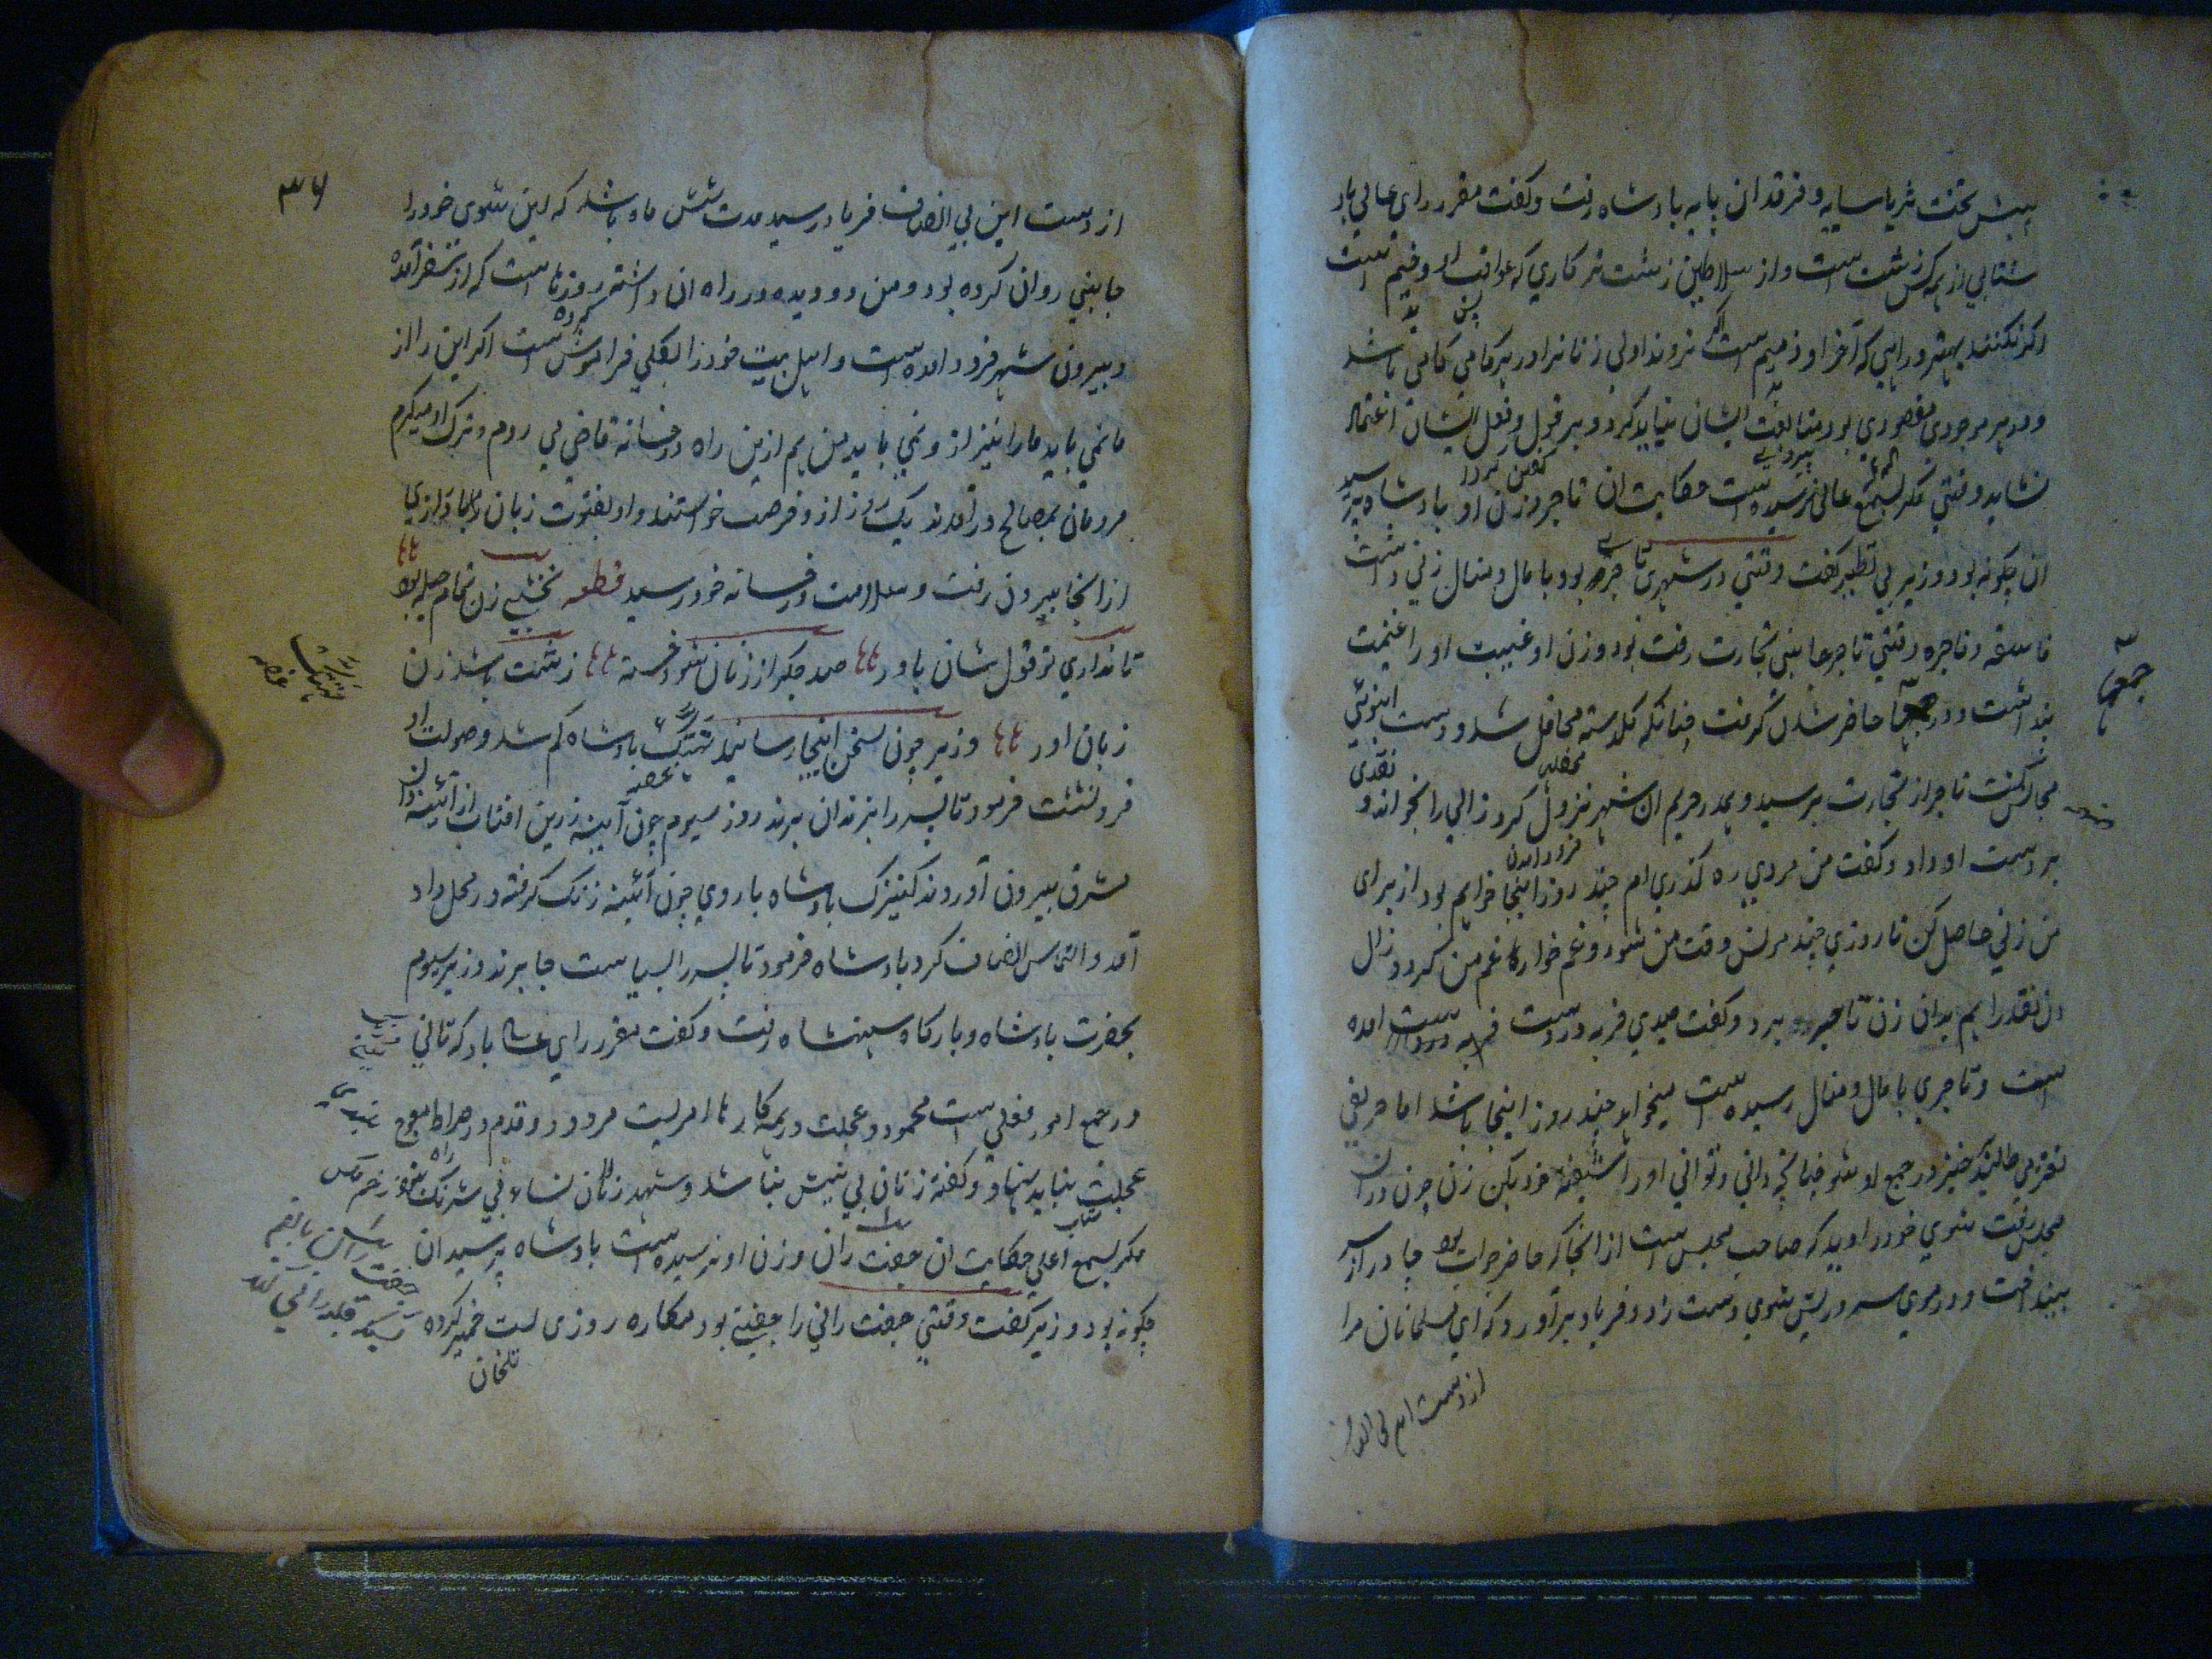 پیش تخت ثریا سایه و فرقدان پایه بادشاه رفت و گفت مقرر رای عالی باد
شتابی از همه کس زشت است و از سلاطین زشت تر کاری که عواقب او وخیم است
اگر نکنند بهتر و راهی که آخر او ذمیم است نروند اولی زنانرا در هر کاهی کاهی باشد
و در هر موجودی قصوری بود متابعت ایشان نباید کرد و بر قول و فعل ایشان اعتماد
نشاید وقتی مگر بسمع عالی نرسیده است حکایت ان تاجر و زن او بادشاه پرسید
ان چگونه بود وزیر بی نظیر گفت وقتی در شهری تاجری بود با مال و منال زنی داشت
فاسقه و فاجره وقتی تاجر جانبی بتجارت رفته بود و زن او غیبت او را غنیمت
پنداشت و در جمعها حاضر شدن گرفت چنانکه گلدسته محافل شد و دست انبوی
مجالس گشت تاجر از تجارت برسید و هم در حریم ان شهر نزول کرد زالی را بخواند و نقدی
بر دست او داد و گفت من مردی ره گذری ام چند روز اینجا خواهم بود از برای
من زنی حاصل کن تا روزی چند مونس وقت من شود و غم خوار غم من گردد زال
ان نقد را هم بدان زن تاجر برد و گفت صیدی فربه در دست آمده
است و تاجری با مال و منال رسیده است میخواهد چند روز اینجا باشد اما حریفی
نغز می طلبد خیز و جمع او شو چنانچه دانی و توانی او را شیفته خود بکن زن چون در ان
مجلس رفت شوی خود را دید که صاحب مجلس است از انجا که حاضر جواب بود چادر از سر
بینداخت و در موی سر و ریش شوی دست زد و فریاد برآورد که ای مسلمانان مرا
از دست این بی انصاف
جمعها
محفل
فرود آمدن
۳۶
از دست این بی انصاف فریاد رسید مدت شش ماه باشد که این شوی خود را
جانبی روان کرده بود و من دو دیده در راه ان داشته روزها است که از سفر آمده
و بیرون شهر فرود امده است و اهل بیت خود را بکلی فراموش کرده است اگر این را از
ما نمی باید ما را نیز از و نمی باید من هم ازین راه در خانه قاضی می روم و ترک او میگیرم
مردمان بمصالح درآمدند یک روز از و فرصت خواستند و او بقوت زبان
از انجا بیرون رفت و سلامت در خانه خود رسید قطعه نخشبی زن تمام حیله بود
تا نداری تو قول شان باور صد جگر از زنان شود خسته زشت باشد زن
زبان اور وزیر چون سخن اینجا رسانید تهتک بادشاه کم شد و صولت او
فرو نشست فرمود تا پسر را بزندان برند روز سیوم چون آیینه زرین افتاب از آئینه دان
مشرق بیرون آوردند کنیزک بادشاه با روی چون آئینه زنگ گرفته در محل داد
آمد و التماس انصاف کرد بادشاه فرمود تا پسر را بسیاست جا برند وزیر سیوم
بحضرت بادشاه و بارگاه شهنشاه رفت و گفت مقرر رای عالی باد که تانی
در جمع امور فعلی است محمود و عجلت در همه کارها امریست مردود و قدم در صراط معوج
عجلت نباید نهاد و گفته زنان بی نیش نباشد و شهد زنان نساء بی شرنگ
مگر بسمع اعلی حکایت ان جفت ران و زن او نرسیده است بادشاه پرسید ان
چگونه بود وزیر گفت وقتی جفت رانی را جفتی بود مکاره روزی است خمیر کرده
تلخان